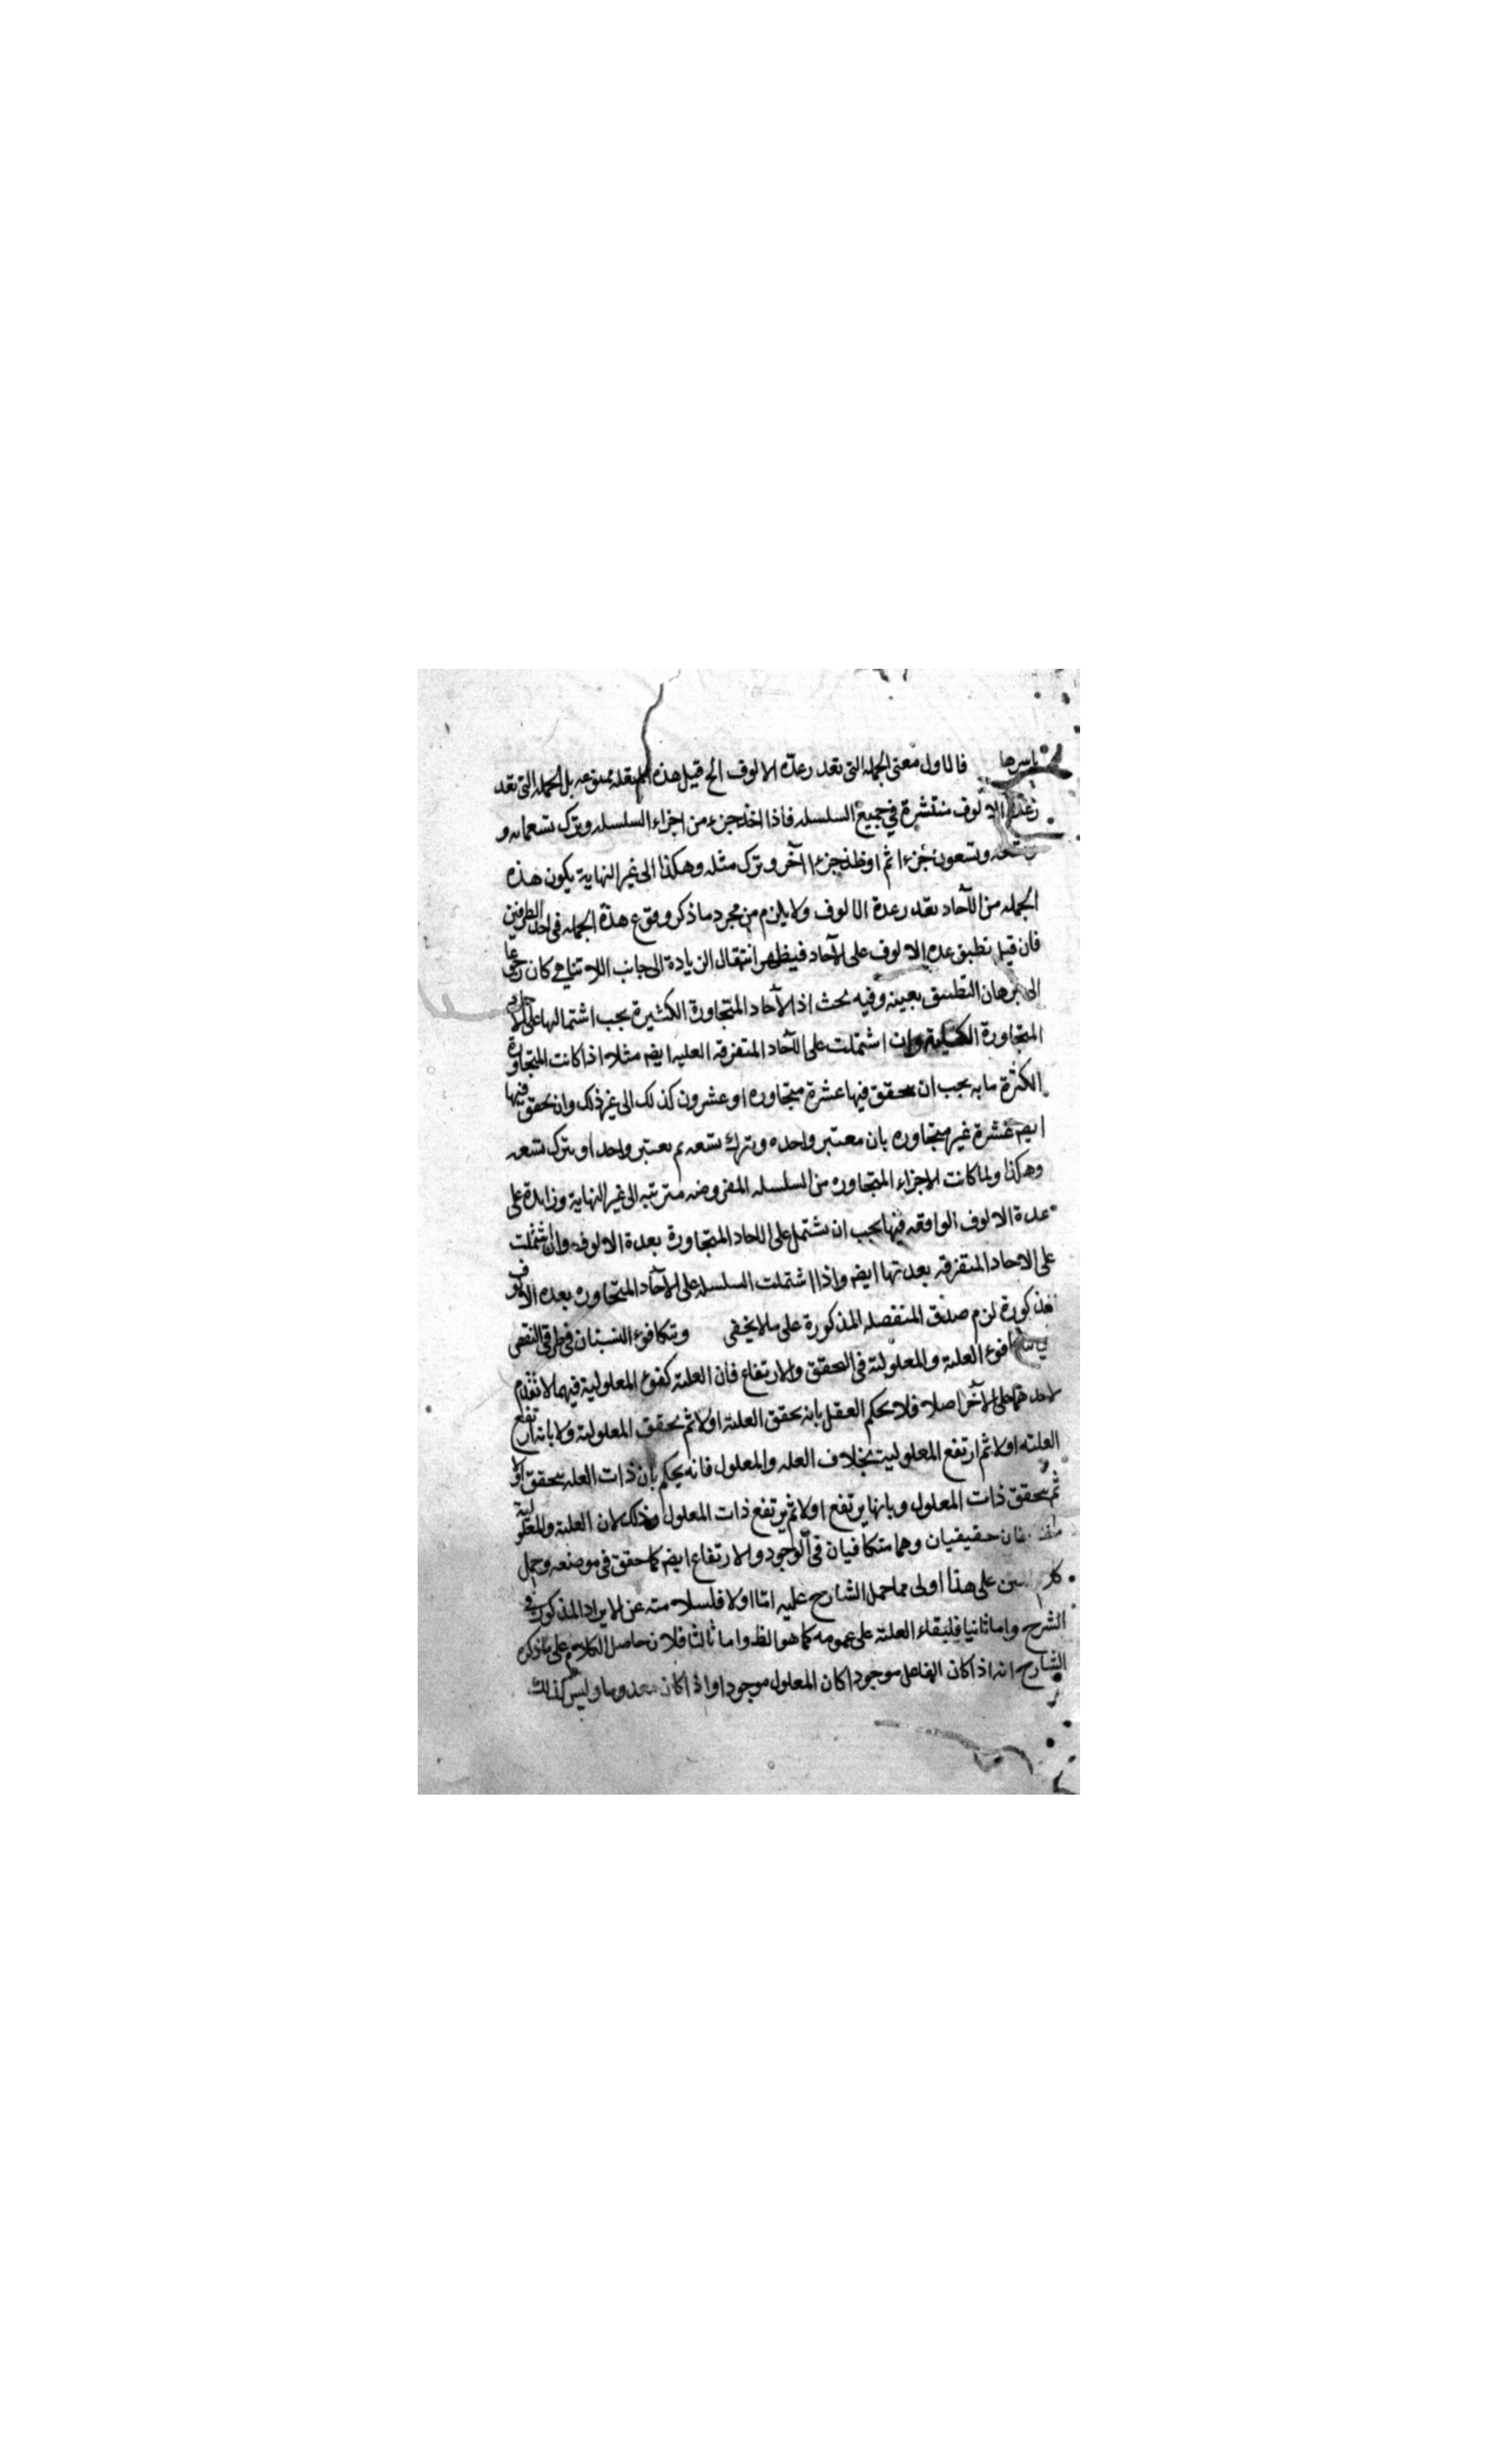 باسرها فالاول معنى الجمله التى بقدر عدة الالوف الخ قيل هذه المقدمة ممنوعه بل الجمله التى بقد
رعدة الالوف منتشرة في جميع السلسله فاذا اخذ جزء من اجزاء السلسله وترك تسعمايه و
وتسعون جزءا ثم اوخذ جزءا آخر وترك مثله وهكذا الى غير النهاية يكون هذه
الجمله من الآحاد بقدر عدة الالوف ولا يلزم من مجرد ما ذكر وقوع هذة الجمله فى احد الطرفين
فان قيل نطبق عدة الالوف على الآحاد فيظهر انتقال الزيادة الى جانب اللاتناهي كان رجوعا
الى برهان التطبيق بعينه وفيه بحث اذ الآحاد المتجاورة الكثيرة يجب اشتمالها على الآحاد
المتجاورة وان اشتملت على الآحاد المتفرقه العليه ايضم مثلا اذا كانت المتجاورة
الكثرة مايه يجب ان يحقق فيها عشرة متجاوره او عشرون كذلك الى غير ذلك وان يحقق فيها
ايضم عشرة غير متجاوره بان معتبر واحده وترك تسعه ثم يعتبر واحد او يترك تسعه
وهكذا ولما كانت الاجزاء المتجاوره من السلسله المفروضه مترتبه الى غير النهاية وزايدة على
عدة الالوف الواقعه فيها يجب ان تشتمل على الآحاد المتجاورة بعدة الالوف وان اشتملت
على الاحاد المتفرقه بعدتها ايضم واذا اشتملت السلسله على الآحاد المتجاوره بعده الالوف
المذكورة لزم صدق المنفصله المذكورة على ما لا يخفى وتكافوء النسبتان فى طرفي النقيض
افوء العلية والمعلولية فى التحقق والارتفاع فان العلية كفوء المعلولية فيهما لا تقدم
لاحدهما على الآخر اصلا فلا يحكم العقل بانه يحقق العلية اولا ثم يحقق المعلولية ولا بانه ارتفع
العليته اولا ثم ارتفع المعلوليت بخلاف العله والمعلول فانه يحكم بان ذات العله يتحقق اولا
ثم يتحقق ذات المعلول وبانها يرتفع اولا ثم يرتفع ذات المعلول وذلك لان العلية والمعلولية
حقيقيان وهما متكافيان فى الوجود والارتفاع ايضم كما حقق فى موضعه وحمل
على هذا اولى مما حمل الشارح عليه اما اولا فلسلامته عن الايراد المذكور فى
الشرح واما ثانيا فلبقاء العلية على عمومه كما هو الظ واما ثالثا فلان حاصل الكلام على ما ذكره
الشارح انه اذا كان الفاعل موجودا كان المعلول موجودا واذا كان معدوما وليس كذلك